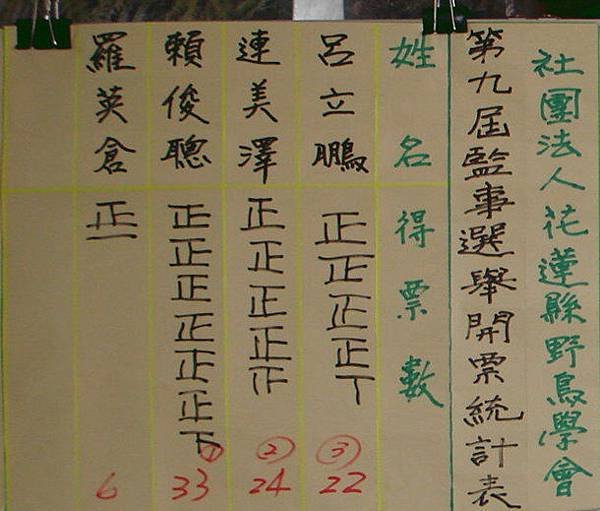 社團法人花蓮縣野鳥學會
第九屆監事選舉開票統計表
姓名 得票數
呂立鵬 正正正正丅 ③ 22
連美澤 正正正正 ② 24
賴俊聰 正正正正正正下 ① 33
羅英倉 正一 6